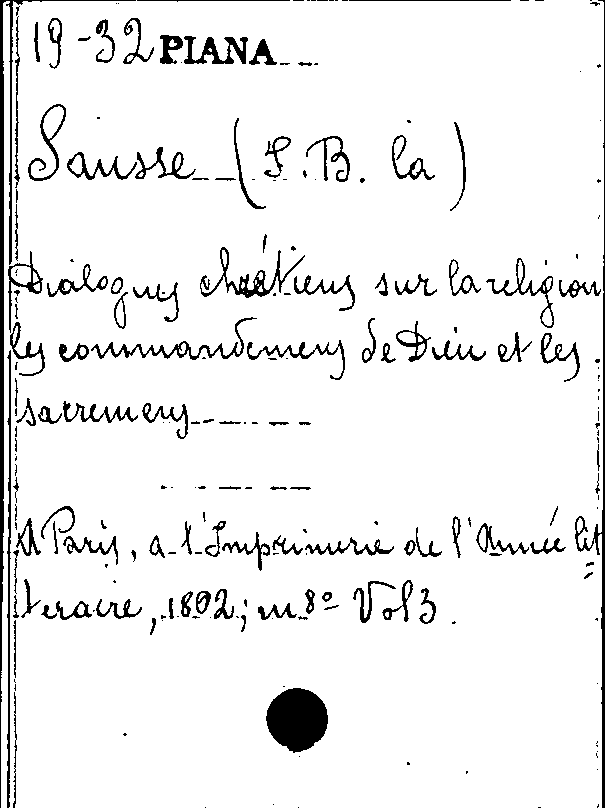 19-32 PIANA
Sausse (J. B. la)
Dialogues chrétiens sur la religion
les commandemens de Dieu et les
sacremens
A Paris, a l'Imprimerie de l'Année lit
teraire, 1802; in 8º Vol 3.